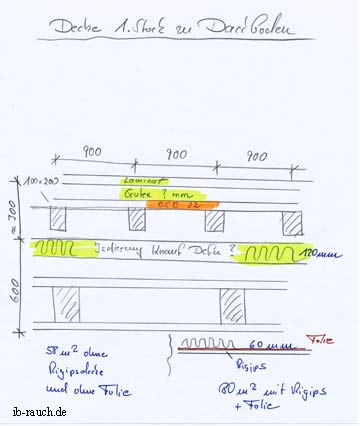 Decke 1. Stock zu Dachboden
900 900 900
Laminat
100x200
Gutex ? mm
OSB 22
≈ 300
Isolierung Knauf Decke ? 120mm
600
58 m² ohne
Rigipsdecke
und ohne Folie
Folie
60 mm
Rigips
80 m² mit Rigips
+ Folie
ib-rauch.de